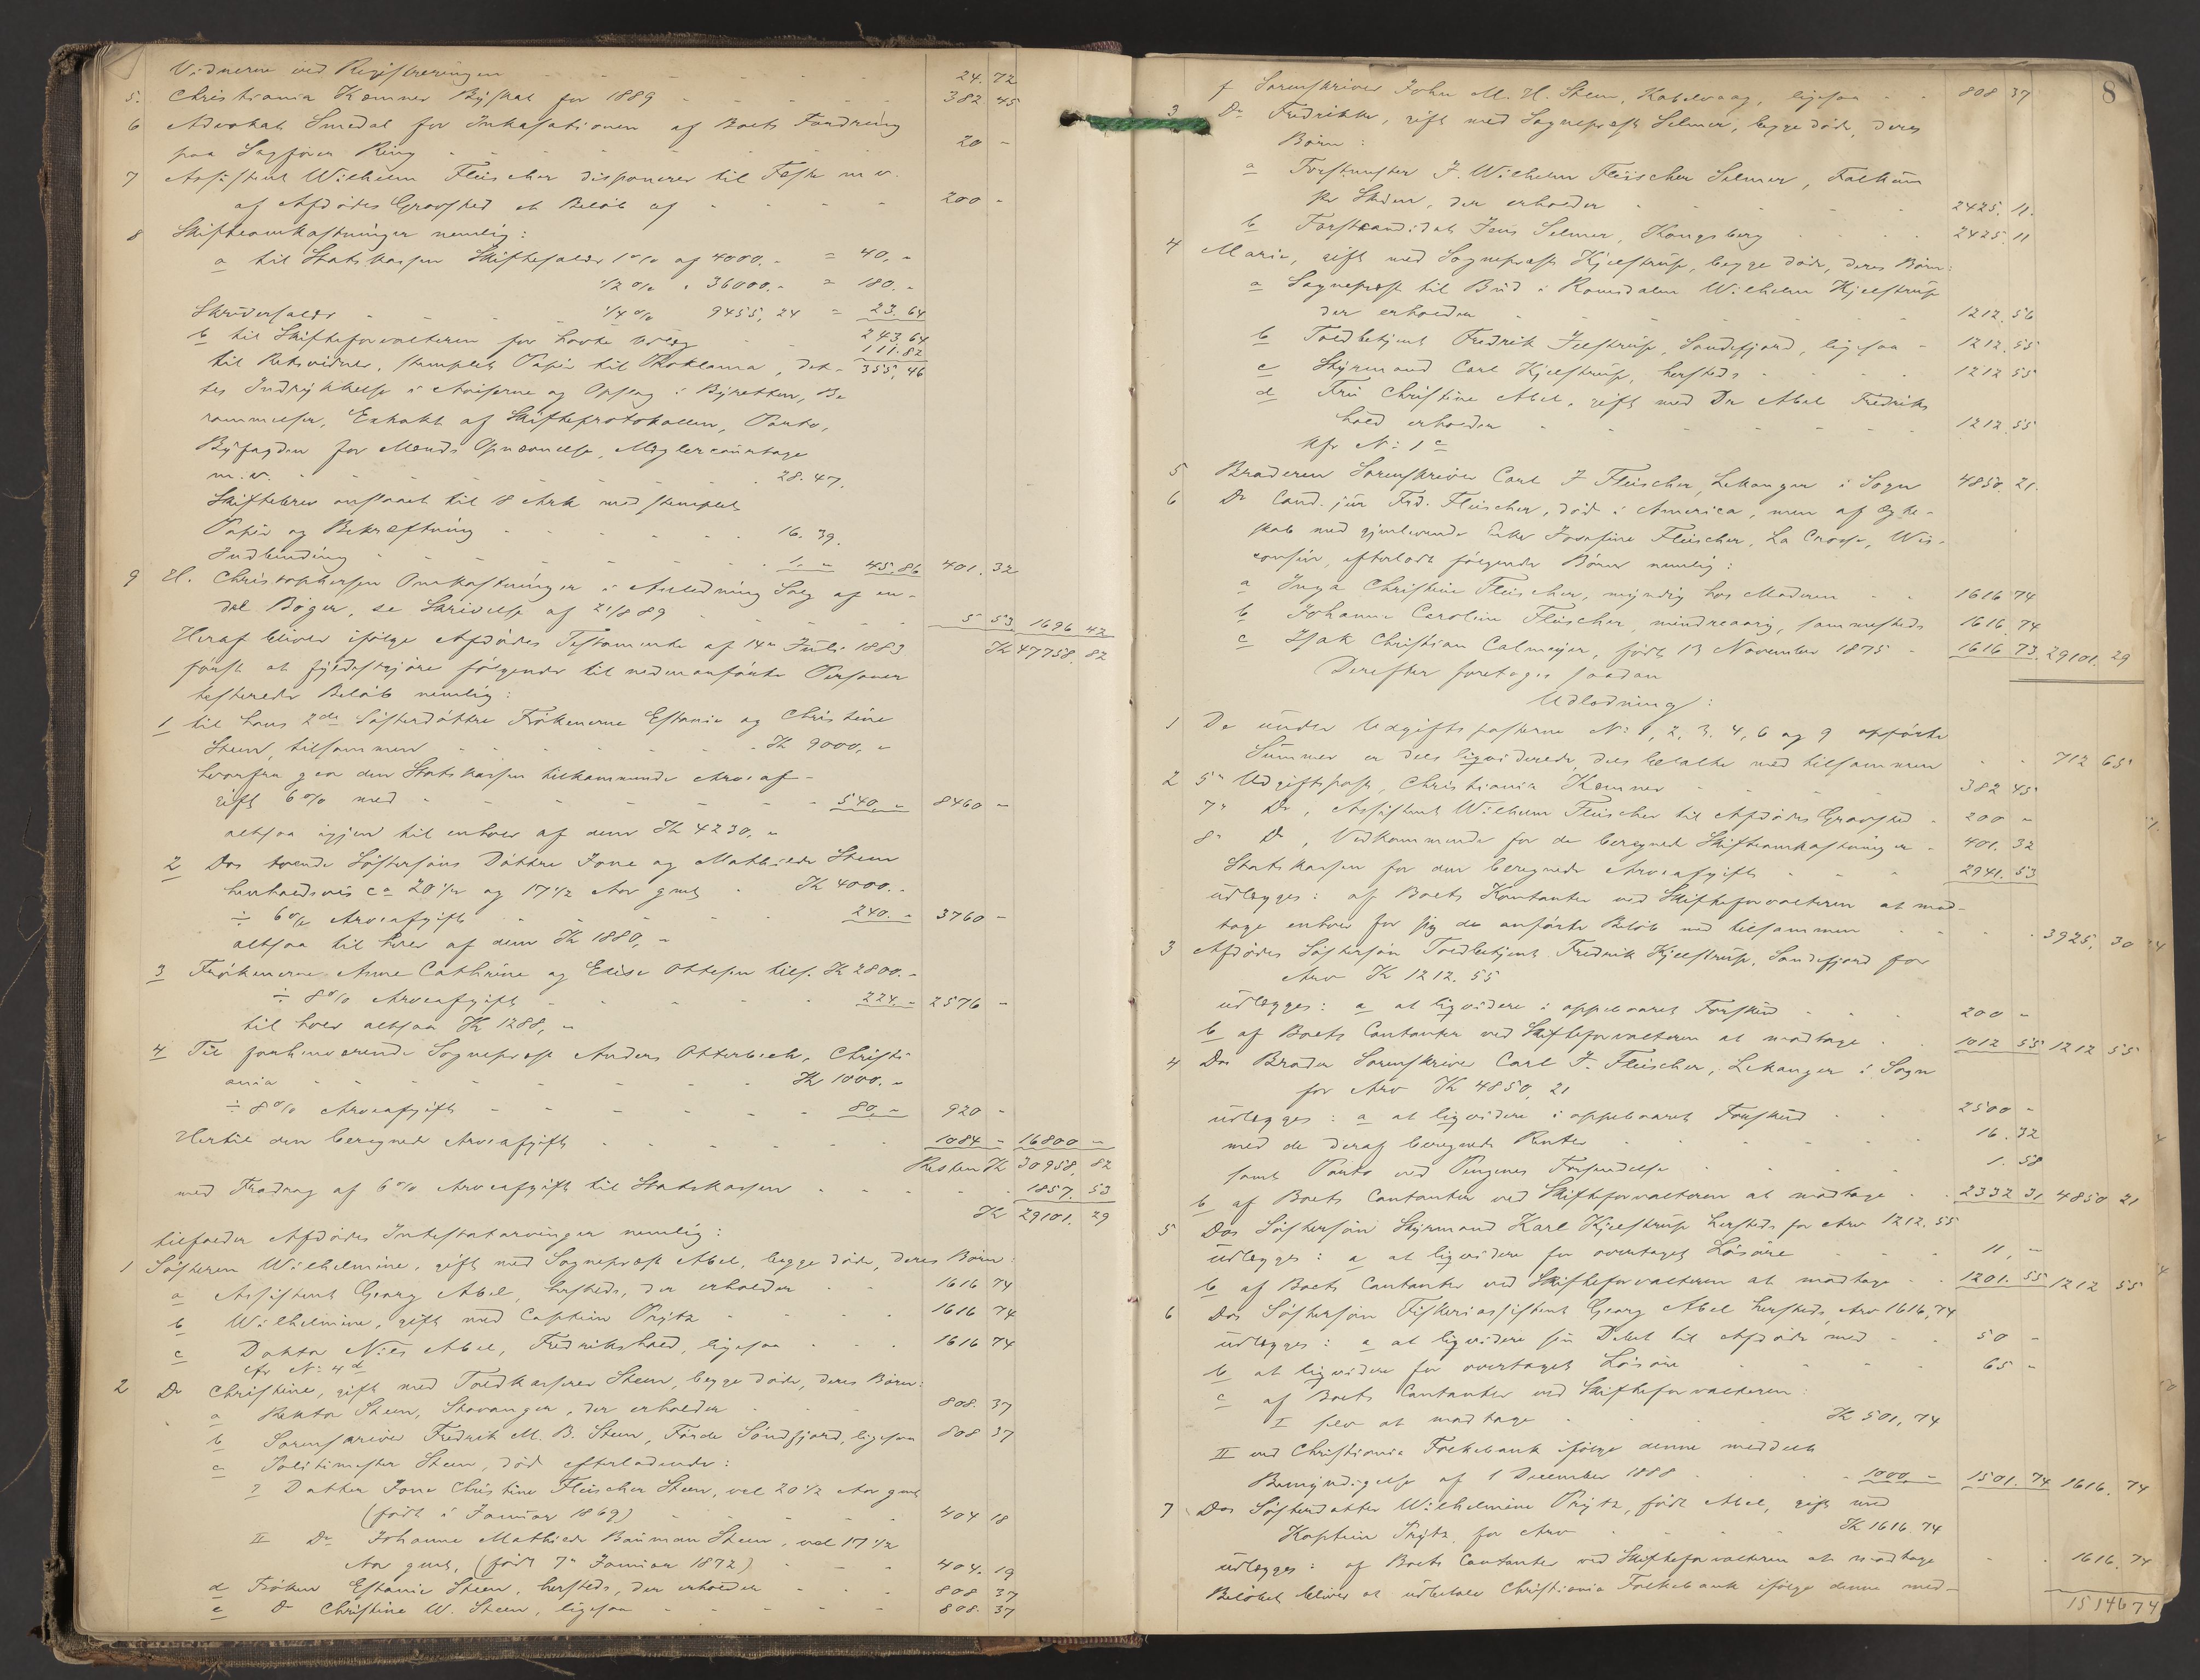 Vidnerne ved Registreringen - - - - - - 24. 72
5. Christiania Kæmner Byskat for 1889 - - - - - 382 45
6 Advokat Smedal for Inkasationen af Boets Fordring
paa Sagfører Ring - - - - - - 20 -
7 Assistent Wilhelm Fleischer disponerer til Feste m v.
af Afdødes Gravsted et Beløb af - - - - 200 -
8 Skifteomkostninger nemlig:
a til Statskassen Skiftesalær 1 % af 4000. - = 40, -
1/2 % " 36000. - = 180. -
Skriversalær - - - 1/4 % 9455, 24 = 23. 64
b til Skifteforvalteren for havte Udlæg - - 243, 64
111. 82
til Retsvidner, stemplet Papir til Proklama, det - 355, 46
tes Indrykkelse i Aviserne og Opslag i Byretten, Be
rammelser, Extrakt af Skifteprotokollen, Porto,
Byfogden for Mænds Opnævnelse, Mæglercourtage
m. v. - - - - - - 28. 47.
Skiftebrev anslaaet til 8 Ark med stemplet
Papir og Bekræftning - - - - - 16. 39.
Indbinding - - - - - - 1. - 45. 86 401. 32
9 H. Christophersen Omkostninger i Anledning Salg af en
del Bøger, se Skrivelse af 21/8 89 - - - - - 5 53. 1696 42
Kr 47758. 82
Heraf bliver ifølge Afdødes Testamente af 14de Juli 1883
først at fyldestgjøre følgende til nedenanførte Personer
testerede Beløb nemlig:
1 til hans 2de Søsterdøttre Frøknerne Estanie og Christine
Steen, tilsammen - - - - - - Kr 9000, -
hvorfra gaar den Statskassen tilkommende Arveaf-
gift 6 % med - - - - - - 540, - 8460 -
altsaa igjen til enhver af dem Kr 4230, -
2 Dos tvende Søstersøns Døttre Jone og Mathilde Steen
henholdsvis ca 20 1/2 og 17 1/2 Aar gml. - Kr 4000. -
÷ 6 % Arveafgift - - - - - 240. - 3760 -
altsaa til hver af dem Kr 1880, -
3 Frøknerne Anne Cathrine og Elise Ottesen tils. Kr 2800. -
÷ 8 % Arveafgift - - - - - 224. - 2576 -
til hver altsaa Kr 1288, -
4 Til forhenværende Sogneprest Anders Otterbech, Christi
ania - - - - - - - Kr 1000. -
÷ 8 % Arveafgift - - - - - - 80. - 920 -
Hertil den beregnede Arveafgift - - - - 1084 - 16800 -
Resten Kr 30958. 82
med Fradrag af 6 % Arveafgift til Statskassen - - - - 1857. 53
Kr 29101. 29
tilfalder Afdødes Intestatarvinger nemlig:
1 Søsteren Wilhelmine, gift med Sogneprest Abel, begge døde, deres Børn:
a Assistent Georg Abel, hersteds, der erholder - - 1616 74
b Wilhelmine, gift med Captein Prytz - - - 1616 74
c Doktor Niels Abel, Fredrikshald, ligesaa - - - 1616 74
cfr N: 4 d
2 Do Christine, gift med Toldkasserer Steen, begge døde, deres Børn:
a Rektor Steen, Stavanger, der erholder - - - 808. 37
b Sorenskriver Fredrik M. B. Steen, Førde Søndfjord, ligesaa 808 37
c Politimester Steen, død efterladende:
I Datter Jone Christine Fleischer Steen, vel 20 1/2 Aar gml
(født i Januar 1869) - - - - - 404 18
II Do Johanne Mathilde Bauman Steen, vel 17 1/2
Aar gml, (født 7de Januar 1872) - - - 404. 19
d Frøken Estanie Steen, hersteds, der erholder - - - 808 37
e Do Christine W. Steen, ligesaa - - - - - 808. 37
8
f Sorenskriver John M. H. Steen, Kabelvaag, ligesaa - - 808 37
3 Do Fredrikke, gift med Sogneprest Selmer, begge døde, deres
Børn:
a Forstmester J. Wilhelm Fleischer Selmer, Falkum
pr Skien, der erholder - - - - - 2425. 11.
b Forstkandidat Jens Selmer, Kongsberg - - - - 2425. 11
4 Marie, gift med Sogneprest Kjelstrup, begge døde, deres Børn:
a Sogneprest til Bud i Romsdalen Wilhelm Kjelstrup
der erholder - - - - - - 1212. 56
b Toldbetjent Fredrik Jelstrup, Sandefjord, ligesaa - 1212. 55
c Styrmand Carl Kjelstrup, hersteds - - - - 1212 55
d Fru Christine Abel, gift med Dr Abel Fredriks
hald erholder - - - - - - 1212. 55
kfr N: 1 c
5 Broderen Sorenskriver Carl F Fleischer, Lekanger i Sogn 4850. 21.
6 Do Cand. jur Frd. Fleischer, død i America, men af Ægte-
skab med gjenlevende Enke Josefine Fleischer, La Crosse, Wis-
consin, efterladt følgende Børn nemlig:
a Inga Christine Fleischer, myndig hos Moderen - - 1616 74
b Johanne Caroline Fleischer, mindreaarig, sammesteds 1616. 74
c Isak Christian Calmeyer, født 13 November 1875 - 1616 73. 29101. 29
Derefter foretages saadan
Udlodning:
1 De under Udgiftsposterne N: 1, 2, 3. 4, 6 og 9 opførte
Summer er dels ligviderede, dels betalte med tilsammen - - 712 65
2 5te Udgiftspost, Christiania Kæmner - - - - 382 45
7de Do, Assistent Wilhelm Fleischer til Afdødes Gravsted - 200 -
8de Do, Vedkommende for de beregnede Skifteomkostninger - 401. 32
Statskassen for den beregnede Arveafgift - - - 2941. 53
udlægges: af Boets Kontanter ved Skifteforvalteren at mod-
tage enhver for sig det anførte Beløb med tilsammen - - - 3925, 30
3 Afdødes Søstersøn Toldbetjent Fredrik Kjelstrup, Sandefjord for
Arv Kr 1212. 55
udlægges: a at ligvidere i oppebaaret Forskud - - - 200 -
b af Boets Contanter ved Skifteforvalteren at modtage - 1012 55 1212 55
4 Dos Broder Sorenskriver Carl F. Fleischer, Lekanger i Sogn
for Arv Kr 4850, 21
udlægges: a at ligvidere i oppebaaret Forskud - - 2500 -
med de deraf beregnede Renter - - - - - 16. 32
samt Porto ved Pengenes Forsendelse - - - - 1. 58
b af Boets Contanter ved Skifteforvalteren at modtage - - 2332 31 4850 21
5 Dos Søstersøn Styrmand Karl Kjelstrup hersteds for Arv 1212. 55
udlægges: a at ligvidere for overtaget Løsøre - - - 11, -
b af Boets Contanter ved Skifteforvalteren at modtage - - 1201. 55 1212 55
6 Dos Søstersøn Fiskeriassistent Georg Abel hersteds, Arv 1616, 74
udlægges: a at ligvidere sin Debet til Afdøde med - - 50 -
b at ligvidere for overtaget Løsøre - - - - 65 -
c af Boets Contanter ved Skifteforvalteren:
I selv at modtage - - - - Kr 501, 74
II ved Christiania Folkebank ifølge denne meddelt
Bemyndigelse af 1 December 1888 - - - 1000, - 1501. 74 1616. 74
7 Dos Søsterdatter Wilhelmine Prytz, født Abel, gift med
Kaptein Prytz for Arv - - - - Kr 1616. 74
udlægges: af Boets Contanter ved Skifteforvalteren at modtage - - 1616. 74
Beløbet bliver at udbetale Christiania Folkebank ifølge denne med-
15146 74